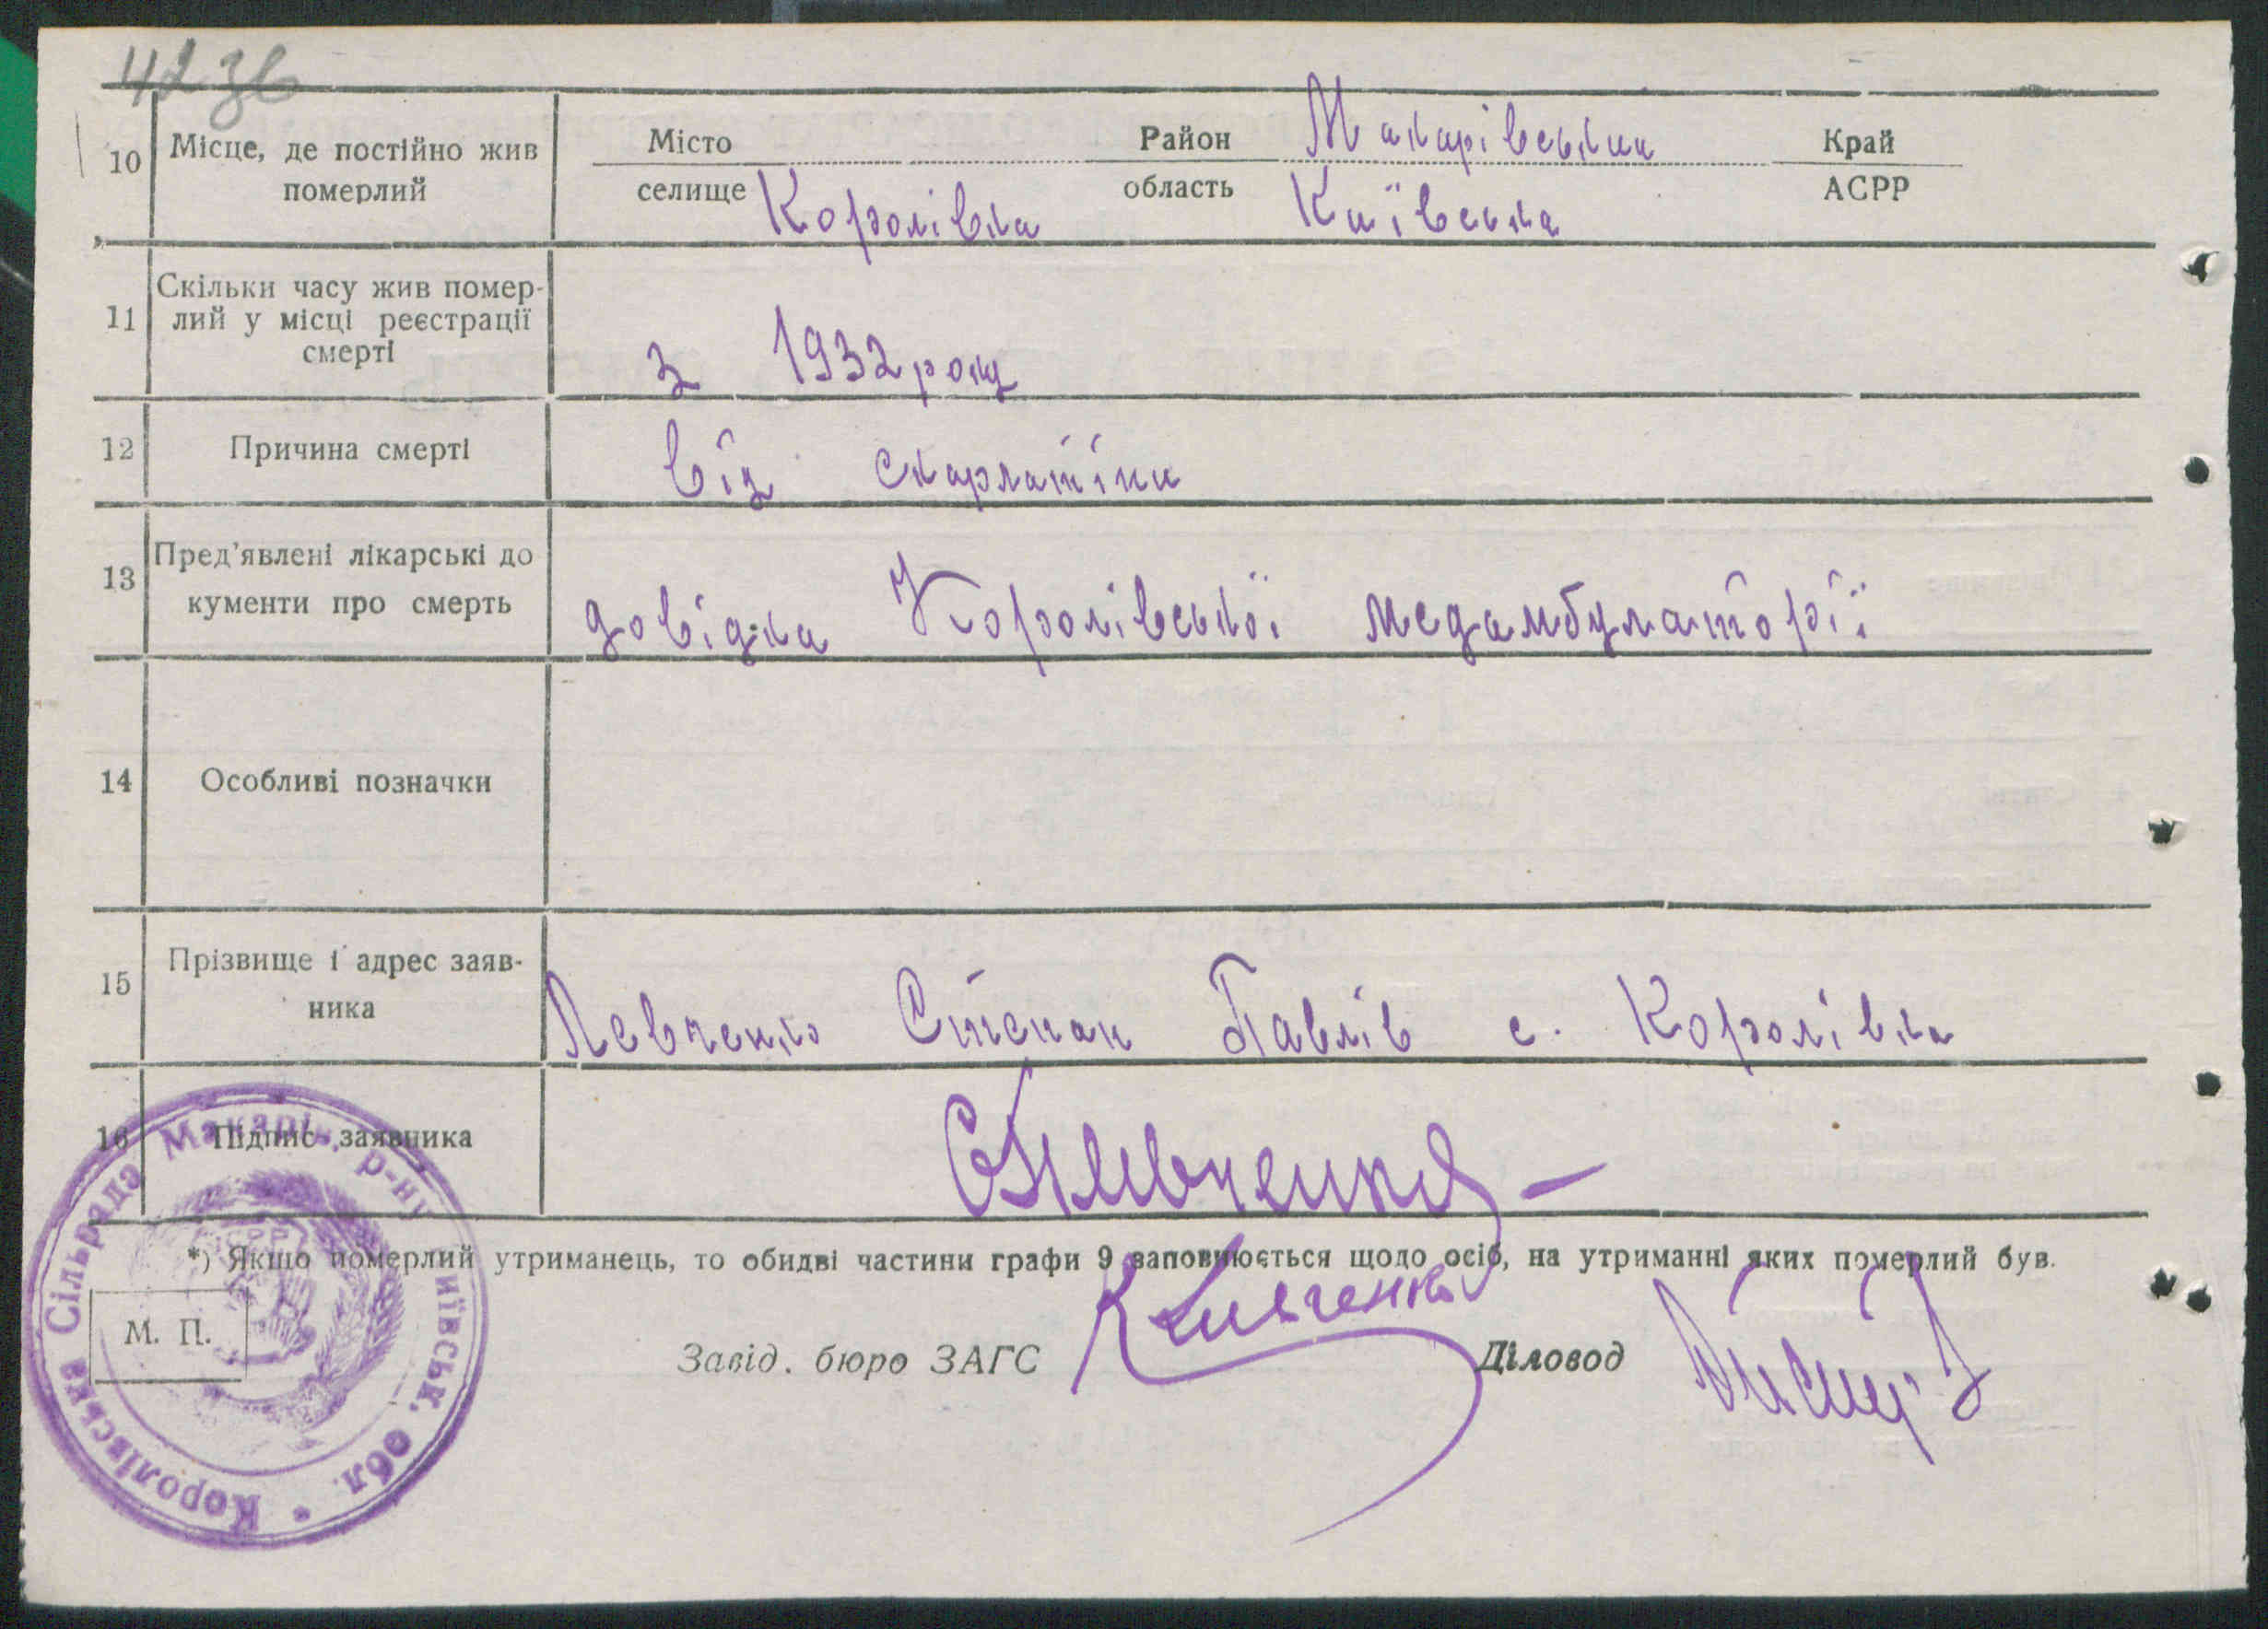 42 зв
10 Місце, де постійно жив померлий
Місто Район Макарівський Край
селище Королівка область Київська АСРР
11 Скільки часу жив помер-
лий у місці реєстрації
смерті
з 1932 року
12 Причина смерті від скарлатіни
13 Пред'явлені лікарські до
кументи про смерть
довідка Королівської медамбулаторії
14 Особливі позначки
15 Прізвище і адрес заяв-
ника
Левченко Степан Павлів с. Королівка
16 Підпис заявника
СПЛевченко
*) Якщо померлий утриманець, то обидві частини графи 9 заповнюється щодо осіб, на утриманні яких померлий був.
М. П.
Завід. бюро ЗАГС
Діловод
Королівська Сільрада Макарів. р-ну Київськ. обл.